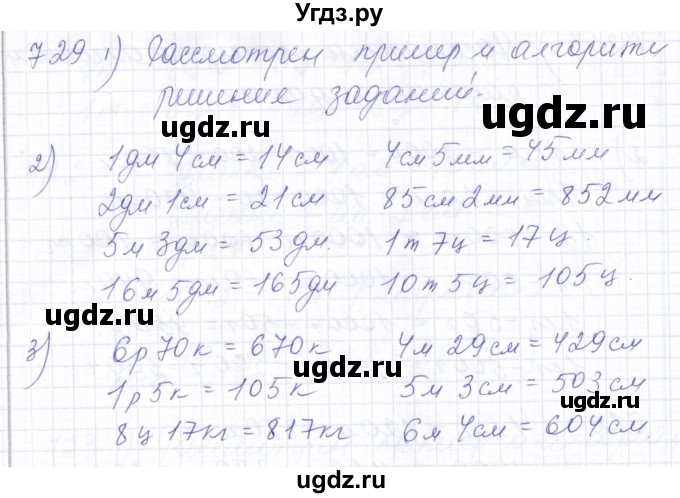 Угдз.ру
729 1) Рассмотрен пример и алгоритм
решение заданий.
ugdz.ru ugdz.ru
2) 1дм 4см = 14см 4см 5мм = 45мм
2дм 1см = 21см 85см 2мм = 852мм
5м 3дм = 53дм. 1т 7ц = 17ц.
ugdz.ru
16м 5дм = 165дм 10т 5ц = 105ц.
ugdz.ru
3) 6р 70к = 670к 4м 29см = 429см
ugdz.ru
1р 5к = 105к 5м 3см = 503см
ugdz.ru
8ц 17кг = 817кг 6м 4см = 604см.
ugdz.ru